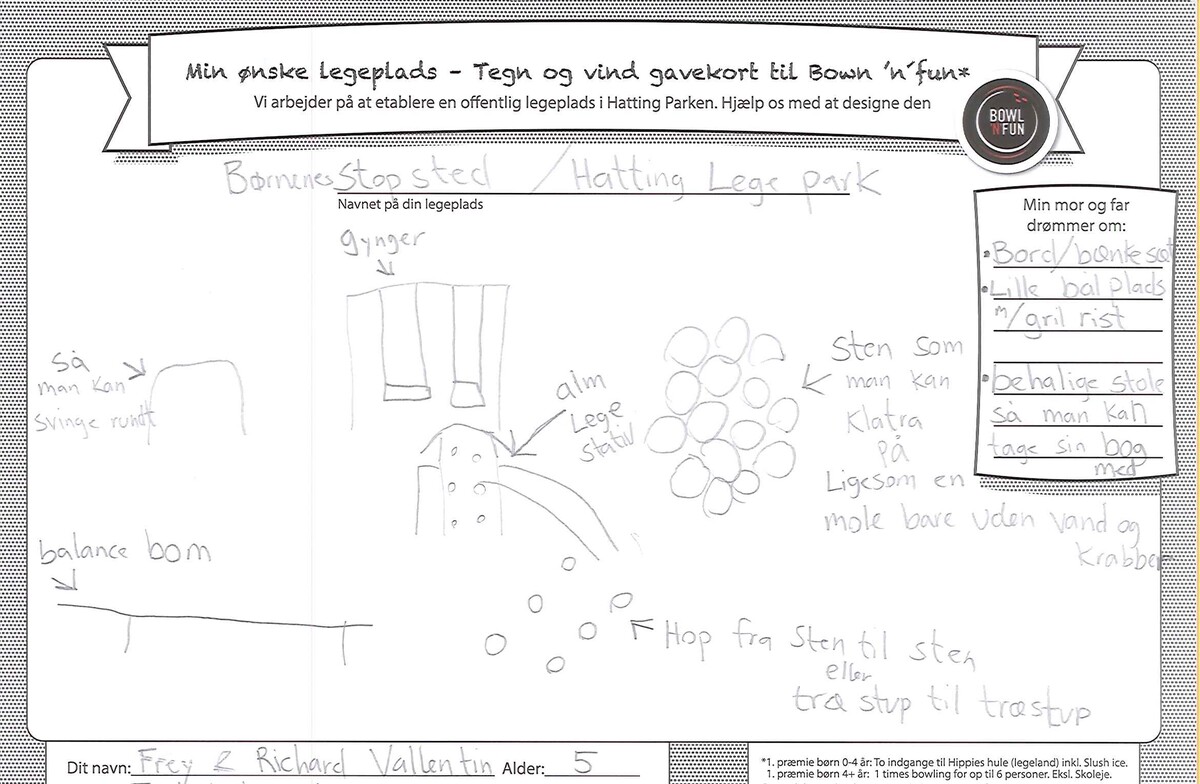 Min ønske legeplads - Tegn og vind gavekort til Bown 'n´fun*
Vi arbejder på at etablere en offentlig legeplads i Hatting Parken. Hjælp os med at designe den
BOWL
'N'FUN
Børnenes Stopsted / Hatting Lege park
Navnet på din legeplads
Min mor og far
drømmer om:
• Bord/bænkesæt
• Lille bål plads
m/gril rist
• behalige stole
så man kan
tage sin bog
med
gynger
så
man kan
svinge rundt
alm
Lege
stativ
Sten som
man kan
Klatra
på
Ligesom en
mole bare uden vand og
Krabber
balance bom
Hop fra Sten til sten
eller
træ stup til træstup
Dit navn: Frey & Richard Vallentin Alder: 5
*1. præmie børn 0-4 år: To indgange til Hippies hule (legeland) inkl. Slush ice.
1. præmie børn 4+ år: 1 times bowling for op til 6 personer. Ekskl. Skoleje.